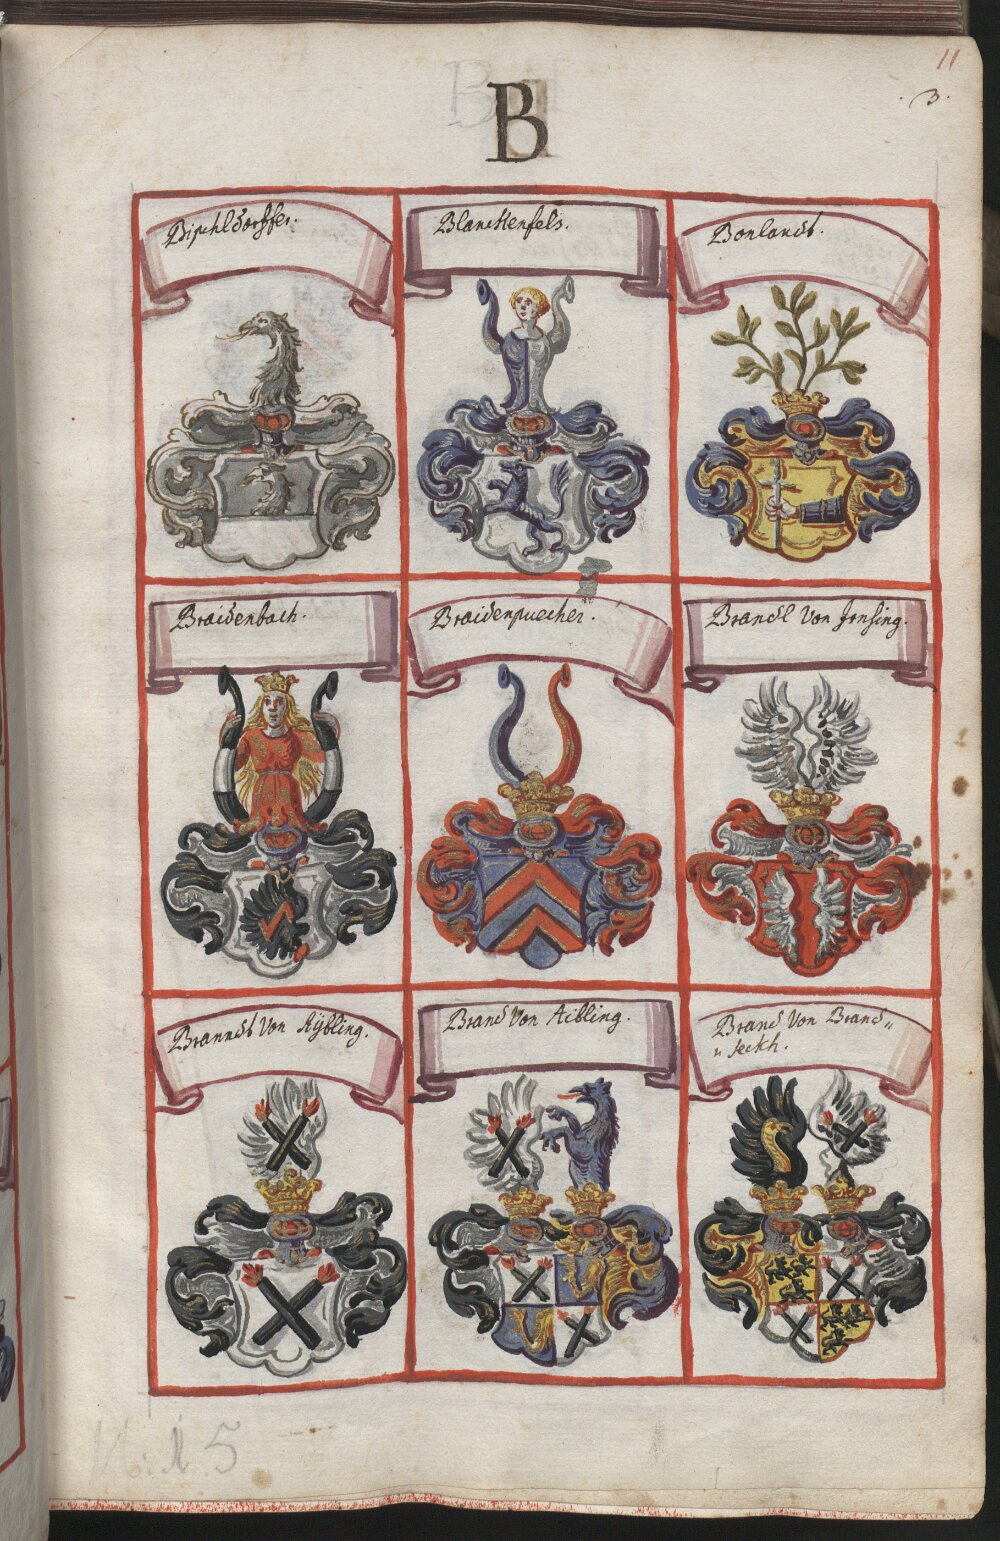 11
3.
B
Pischldorffer.
Blanckenfels.
Bonlandt.
Braidenbach.
Braidenpuecher.
Brandl Von Jrnsing.
Branndt Von Aÿbling.
Brand Von Aibling.
Brand Von Brand„
„ seckh.